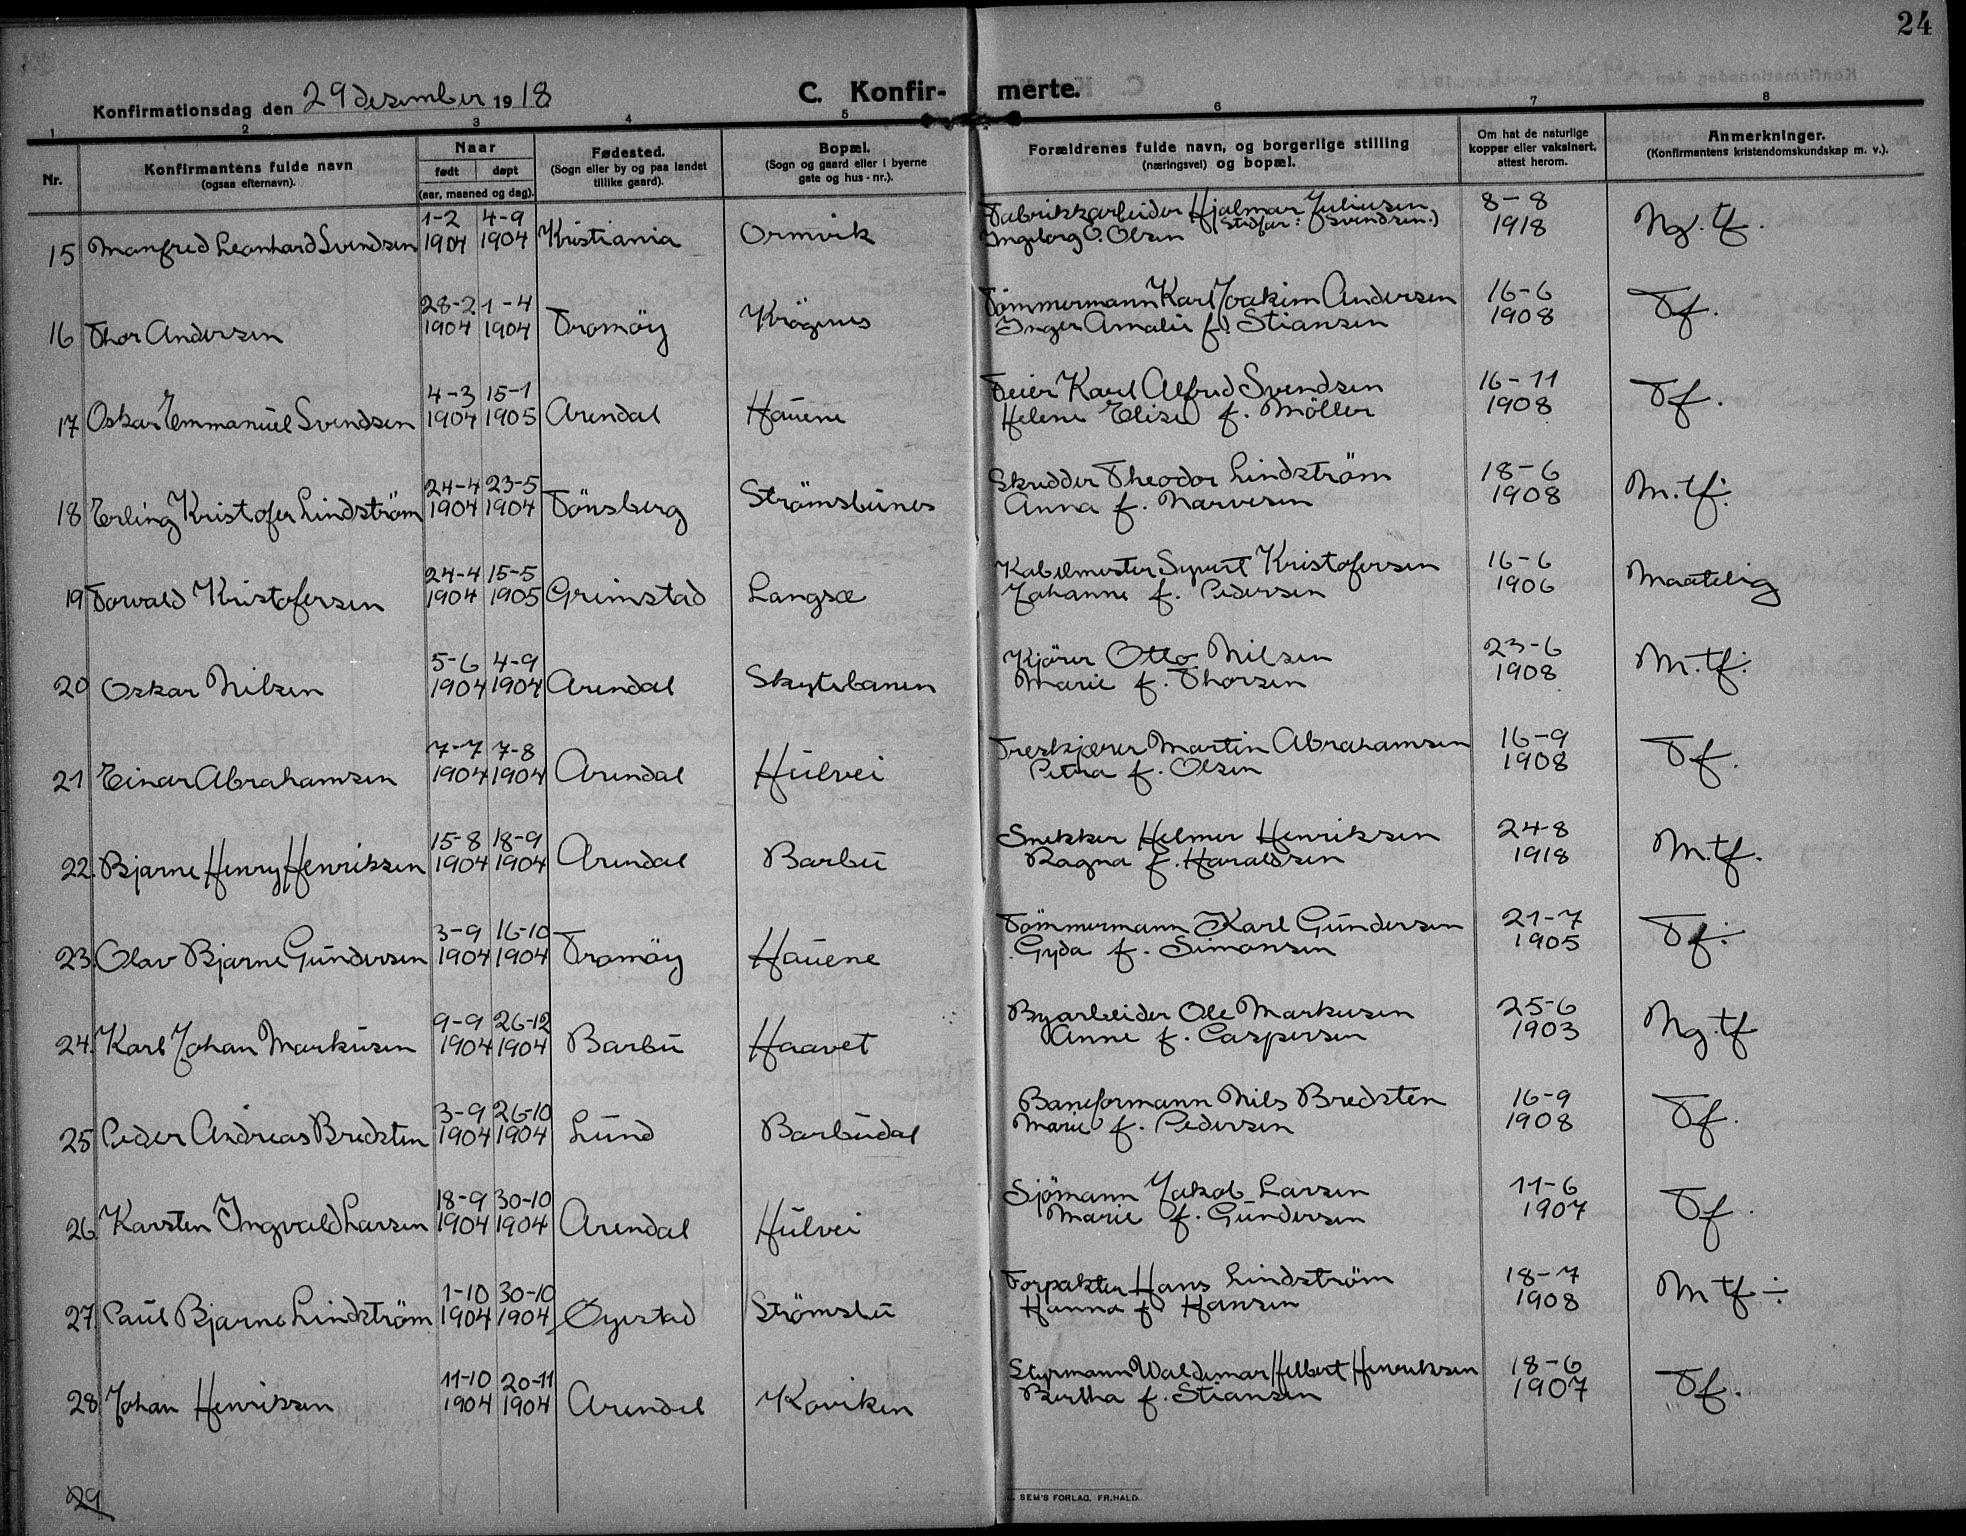 24
Konfirmationsdag den 29 desember 1918
C. Konfir- merte.
1 2 3 4 5 6 7 8
Nr.
Konfirmantens fulde navn
(ogsaa efternavn).
Naar
født døpt
(aar, maaned og dag).
Fødested.
(Sogn eller by og paa landet
tillike gaard).
Bopæl.
(Sogn og gaard eller i byerne
gate og hus-nr.).
Forældrenes fulde navn, og borgerlige stilling
(næringsvei) og bopæl.
Om hat de naturlige
kopper eller vaksinert,
attest herom.
Anmerkninger.
(Konfirmantens kristendomskundskap m. v.).
1-2 4-9 Fabrikkarbeider Hjalmar Juliusen 8-8
15 Manfred Leonhard Svendsen 1904 1904 Kristiania Ormvik Ingeborg O. Olsen (stedfar: Svendsen.) 1918 Ng. tf.
28-2 1-4 Tömmermann Karl Joakim Andersen 16-6
16 Thor Andersen 1904 1904 Tromöy Krögenes Inger Amalie f. Stiansen 1908 Tf.
4-3 15-1 Feier Karl Alfred Svendsen 16-11
17 Oskar Emmanuel Svendsen 1904 1905 Arendal Hauene Helene Elise f. Möller 1908 Tf.
24-4 23-5 Skredder Theodor Lindström 18-6
18 Erling Kristofer Lindström 1904 1904 Tönsberg Strömsbunes Anna f. Narvesen 1908 M. tf.
24-4 15-5 Kabelmester Syvert Kristofersen 16-6
19 Torvald Kristofersen 1904 1905 Grimstad Langsæ Johanne f. Pedersen 1906 Maatelig
5-6 4-9 Kjörer Otto Nilsen 23-6
20 Oskar Nilsen 1904 1904 Arendal Skytebanen Marie f. Thorsen 1908 M. tf.
7-7 7-8 Treskjærer Martin Abrahamsen 16-9
21 Einar Abrahamsen 1904 1904 Arendal Hulvei Petra f. Olsen 1908 Tf.
15-8 18-9 Snekker Helmer Henriksen 24-8
22. Bjarne Henry Henriksen 1904 1904 Arendal Barbu Ragna f. Haraldsen 1918 M. tf.
3-9 16-10 Tömmermann Karl Gundersen 21-7
23. Olav Bjarne Gundersen 1904 1904 Tromöy Hauene Gyda f. Simonsen 1905 Tf.
9-9 26-12 Byarbeider Ole Markusen 25-6
24. Karl Johan Markusen 1904 1904 Barbu Haavet Anne f. Caspersen 1903 Ng. tf
3-9 26-10 Baneformann Nils Bredsten 16-9
25 Peder Andreas Bredsten 1904 1904 Lund Barbudal Marie f. Pedersen 1908 Tf.
18-9 30-10 Sjömann Jakob Larsen 11-6
26 Karsten Ingvald Larsen 1904 1904 Arendal Hulvei Marie f. Gundersen 1907 Tf.
1-10 30-10 Forpakter Hans Lindström 18-7
27. Paul Bjarne Lindström 1904 1904 Öyestad Strömsbu Hanna f. Hansen 1908 M tf ÷
11-10 20-11 Styrmann Waldemar Helbert Henriksen 18-6
28 Johan Henriksen 1904 1904 Arendal Koviken Bertha f. Stiansen 1907 Tf.
29
SEM'S FORLAG, FR.HALD.